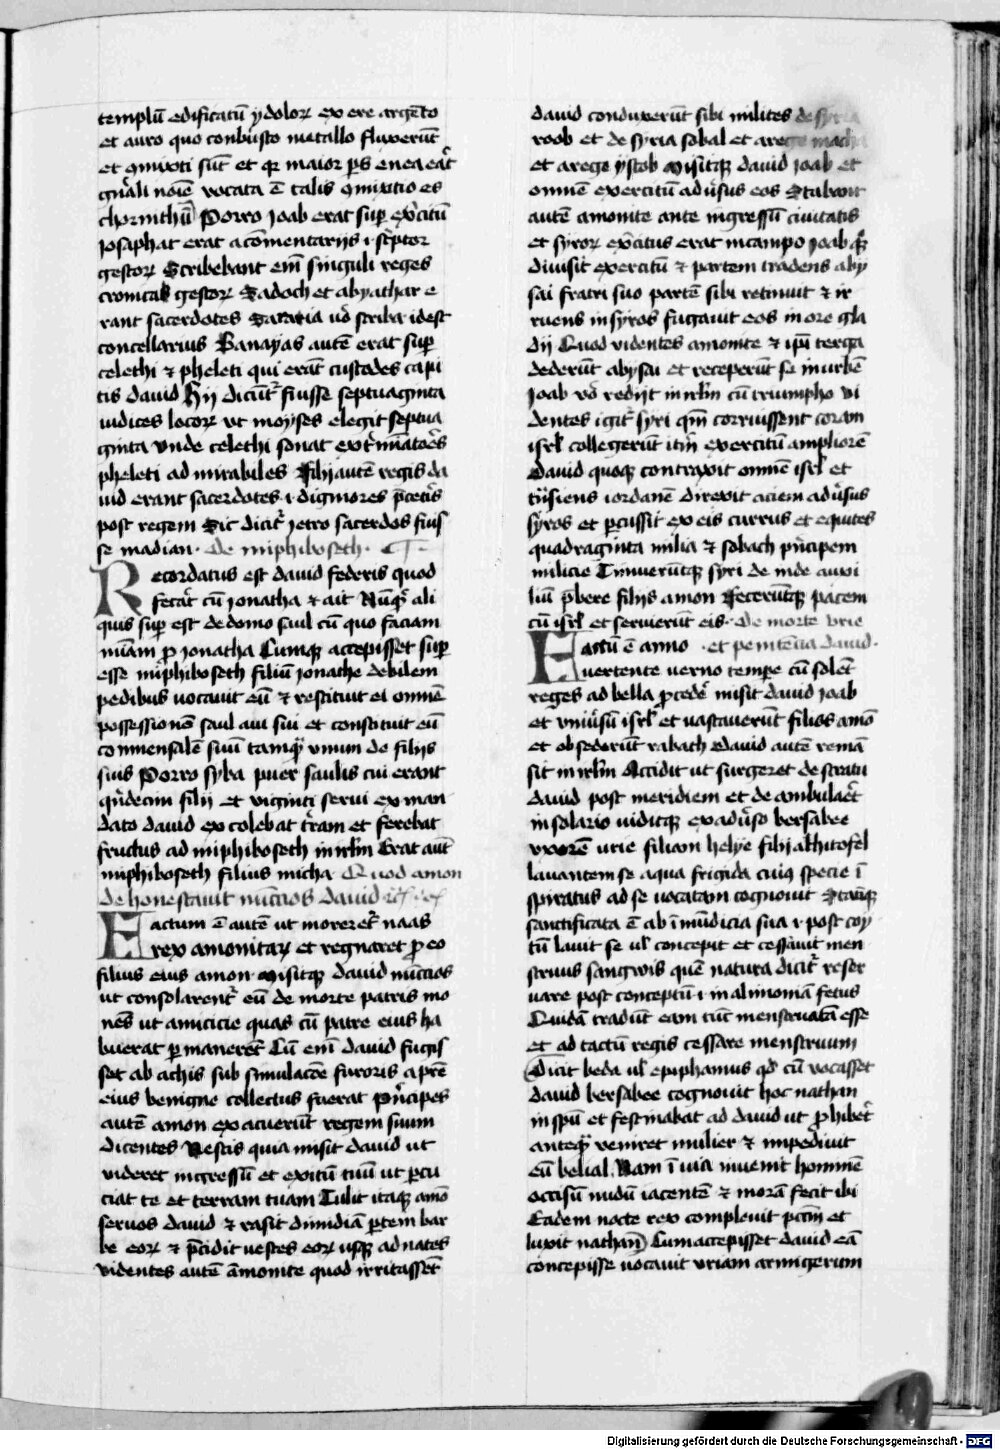 templū edificatū ydolorꝝ ex ere argēto
et auro quo conbusto metallo fluxerūt
et ꝯmixti sūt et qꝛ maior ps enea eāt
gn̄ali noīe vocata ē talis ꝯmixtio es
chorinthiū Porro Joab erat sup exc̄itū
Josaphat erat a cōmentarijs i sc̄ptor
gestorꝝ Scribebant em̄ singuli reges
cronicas gestorꝝ Sadoch et abyathar e
rant sacerdotes Saraia vō scriba idest
concellarius Banayas autē erat sup
celethi ⁊ pheleti qui erāt custodes capi
tis david Hij dicūt᷑ fuisse septuaginta
iudices locorꝝ vt moyses elegit septua
ginta Vnde celethi sonat ext᷑mīatoēs
pheleti ad mirabiles Filij autē regis da
uid erant sacerdotes i digniores p̄cet᷑is
post regem Sic dicit᷑ Jetro sacerdos fuis
se madian · De miphiboseth ·
Recordatus est david federis quod
fecāt cū Jonatha ⁊ ait Nūq̄d ali
quis sup est de domo saul cū quo faciam
mīam ꝓ Jonatha Cumqꝫ accepisset sup
esse miphiboseth filiū Jonathe debilem
pedibus vocavit eū ⁊ restituit ei omnē
possessionē saul avi sui et constituit eū
conmensalē suū tamq̄ vnum de filijs
suis Porro syba puer saulis cui erant
qn̄decim filij et viginti servi ex man
dato david excolebat t᷑ram et ferebat
fructus ad miphiboseth in irlm̄ Erat aut̄
miphiboseth filius micha Quod amon
dehonestavit nūccios david
Factum ē autē ut moreret᷑ naas
rex amonitaꝝ et regnaret ꝓ eo
filius eius amon Misitqꝫ david nūccios
ut consolarent᷑ eū de morte patris mo
nēs ut amicicie quas cū patre eius ha
buerat ꝑmanerēt Cū em̄ david fugis
set ab achis sub simulacōe furoris a pr̄e
eius benigne collectus fuerat Pn̄cipes
autē amon exacuerūt regem suum
dicentes Nescis quia misit david ut
videret ingressū et exitū tuū ut ꝑcu
ciat te et terram tuam Tulit itaqꝫ amō
servos david ⁊ rasit dimidiā ꝑtem bar
be eorꝝ ⁊ p̄cidit vestes eorꝝ usqꝫ ad nates
Videntes autē āmonite quod irritassēt
david conduxerūt sibi milites de syria
roob et de syria sobal et a rege macha
et a rege ystob Misitqꝫ david Joab et
omnē exercitū adūsus eos Stabant
autē amonite ante ingressū civitatis
et syrorꝝ exc̄itus erat in campo Joab
divisit exercitū ⁊ partem tradens aby
sai fratri suo partē sibi retinuit ⁊ ir
ruens in syros fugavit eos in ore gla
dij Quod videntes amonite ⁊ ipī terga
dederūt abysai et receperūt se in urbē
Joab vō redijt in irlm̄ cū triumpho Vi
dentes igit᷑ syri qm̄ corruissent coram
isrl̄ collegerūt itm̄ exercitū ampliorē
David quoqꝫ contraxit omnē isrl̄ et
t᷑nsiens iordanē direxit aciem adūsus
syros et ꝑcussit ex eis currus et equites
quadraginta milia ⁊ sobach pn̄cipem
milicie Timuerūtqꝫ syri de inde auxi
liū p̄bere filijs amon Fecerūtqꝫ pacem
cū isrl̄ et servierūt eis · De morte vrie
Factū ē anno · et penitēcia david ·
vertente verno tempe cū solēt
reges ad bella ꝓcedē misit david Joab
et vniūsū isrl̄ et vastaverūt filios amō
et obsederūt rabach David autē remā
sit in irlm̄ Accidit ut surgeret de stratu
david post meridiem et deambulāet
in solario viditqꝫ ex adūso bersabee
vxorē vrie filiam helye filij akhitofel
lavantem se aqua frigida cuiꝯ specie ī
spiratus ad se vocatam cognovit Statīqꝫ
sanctificata ē ab īmūdicia sua i post coy
tū lavit se ul̄ concepit et cessavit men
struus sangwis quē natura dicit᷑ reser
vare post conceptū i in alimoniā fetus
Quidā tradūt eam tūc menstruatā esse
et ad tactū regis cessare menstruum
Dicit beda ul̄ epiphanius qd̄ cū vocasset
david bersabee cognovit hoc nathan
in spū et festinabat ad david ut ꝓhibēt
anteq̄ veniret mulier ⁊ impedivit
eū belial Nam ī via invenit hominē
occisū nudū iacentē ⁊ morā fecit ibi
Eadem nocte rex complevit pctm̄ et
luxit nathan Cum accepisset david eā
concepisse vocavit vriam armigerum
Digitalisierung gefördert durch die Deutsche Forschungsgemeinschaft - DFG